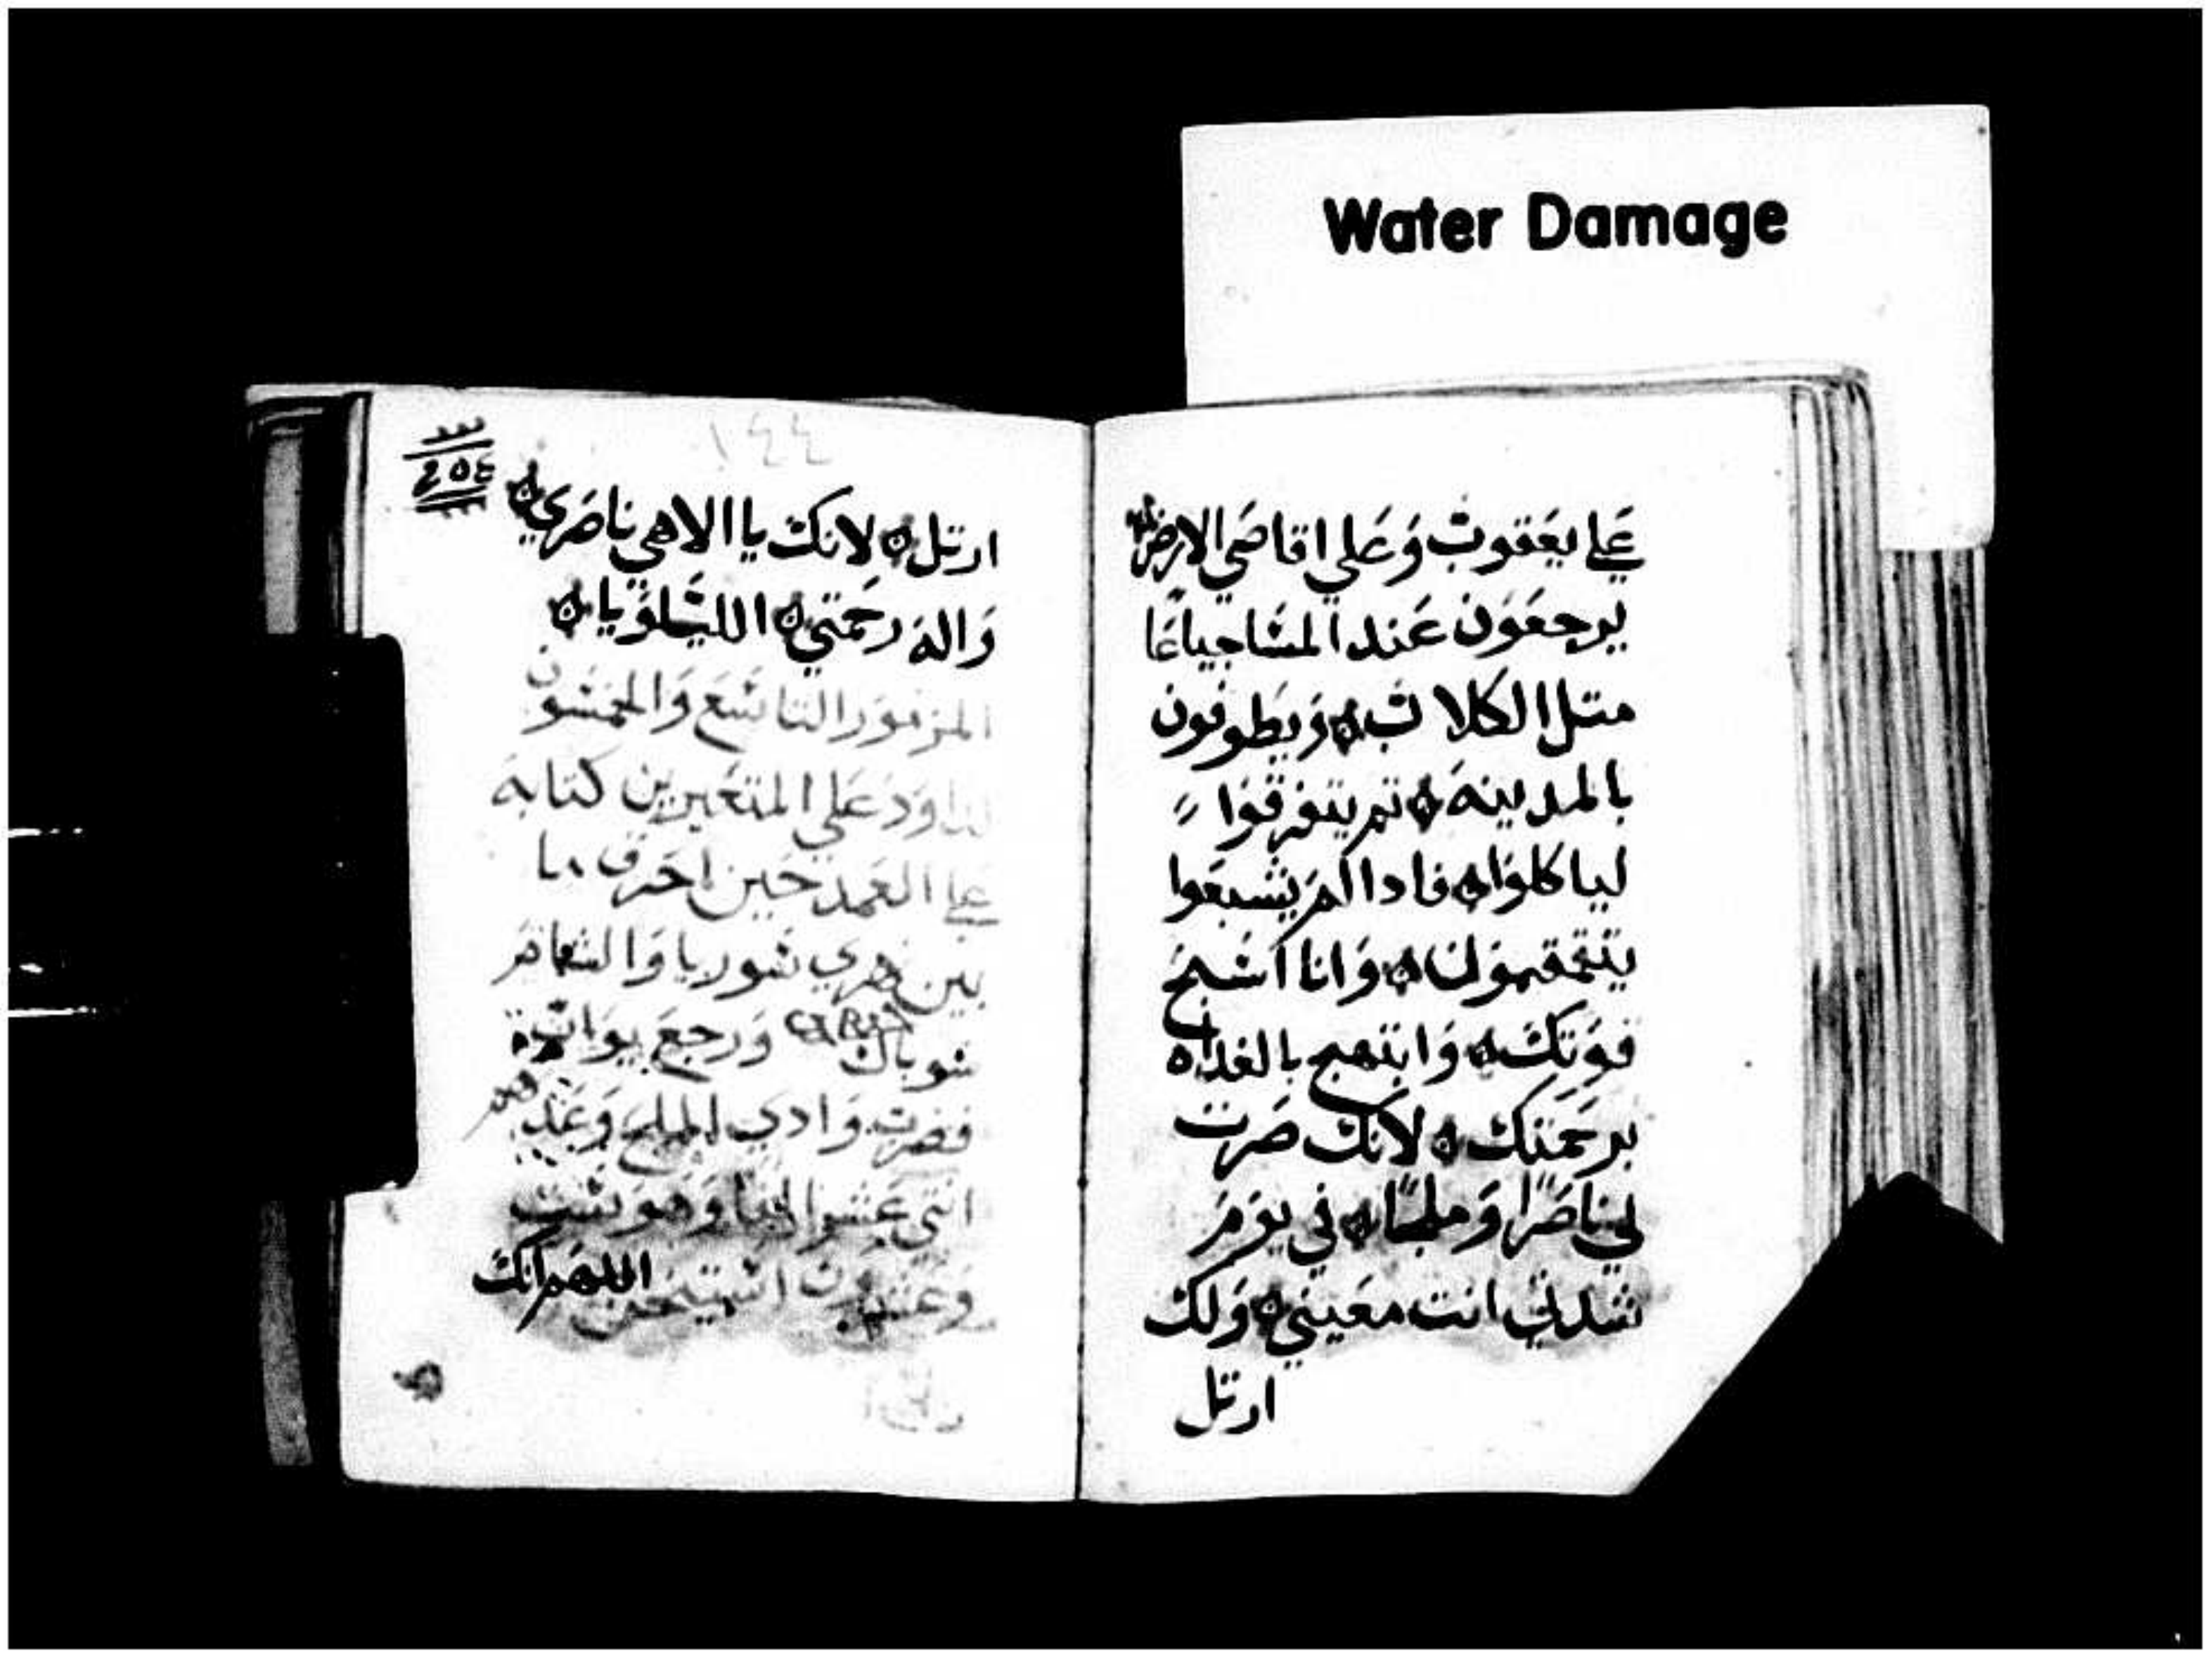 Water Damage
علي يعقوب وعلي اقاصي الارض
يرجعون عند المساجياعا
متل الكلاب ويطوفون
بالمدينه تم يتفرقوا
لياكلوا فادا لم يشبعوا
يتقمقمون وانا اسبح
قوتك وابتهج بالغداه
برحمتك لانك صرت
لي ناصرا وملجا في يوم
شدتي انت معيني ولك
ارتل
١٤٤
ارتل لانك يا الاهي ناصري
واله رحمتي الليلويا
المزمور التاسع والخمسون
لداود علي المتغيرين كتابه
علي العمد حين احرق ما
بين نهري سوريا
سوبال ورجع يواب
فضرب وادي الملح وعد
اتني عشر الفا وهو ست
وعشرون استيخن
اللهم انك